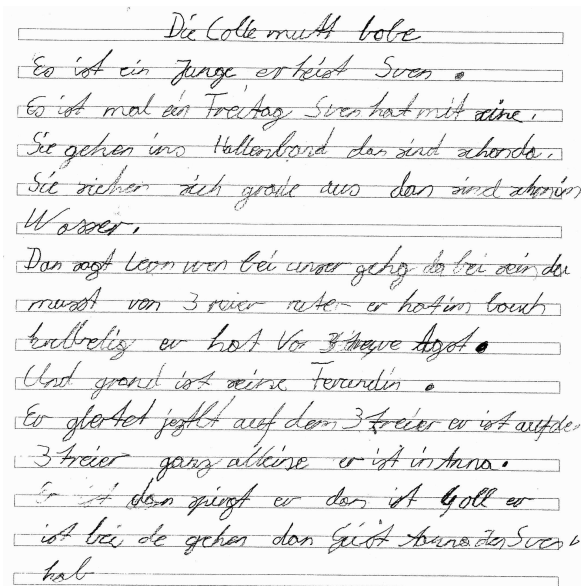 Die Colle mutt bobe
Es ist ein Junge er heist Sven .
Es ist mal ein Freitag Sven hat mit seine .
Sie gehen ins Hallenbard dan sind schonda .
Sie sichen sich grade aus dan sind schonim
Wasser .
Dan sagt Leon wen bei unser gehg da bei sein du
musst von 3 reier ruter er hat im bauch
kribbelig er hat Vor Agst .
Und grand ist seine Ferundin .
Er glertet jeztlt auf dem 3 treier er ist aufde
3 treier ganz alleine er ist in Anna .
Er ist dan spirgt er dan ist Goll er
ist bei de gehen dan Anna den Sven
hab